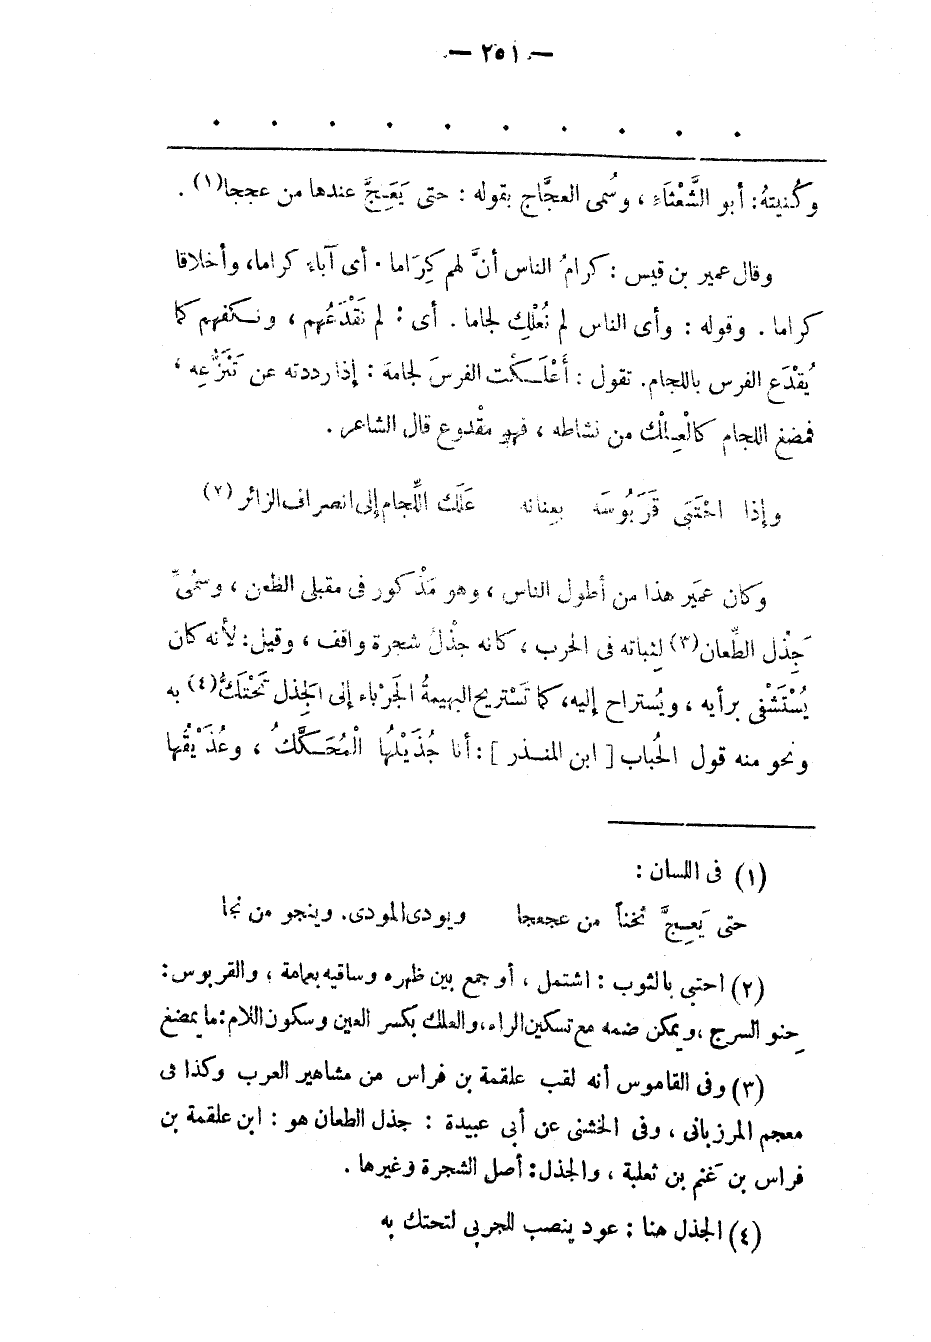 — ٢٥١ —
وكُنيتهُ: أبو الشَّعْثَاءِ ، وسُمى العجَّاج بقوله : حتى يَعَِجَّ عندها من عججا(١) .
وقال عمير بن قيس : كرامُ الناس أنَّ لهم كِرَاما . أى آباء كراما، وأخلاقا
كراما . وقوله : وأى الناس لم نُعْلِك لجاما . أى : لم نَقْدَعُهم ، ونكفهم كما
يُقدَع الفرس باللجام. تقول : أَعْلَكْت الفرسَ لجامَه : إذا رددته عن تَنَزُّعِه ،
فمضغ اللجام كالْعِلْك من نشاطه ، فهو مقْدوع قال الشاعر .
وإذا احْتَبَى قَرَبُوسَه بعِنانه عَلَك اللِّجام إلى انصراف الزائر (٢)
وكان عمَير هذا من أطول الناس ، وهو مَذْكور فى مقبلى الظعن ، وسمُىِّ
جِذْل الطِّعان(٣) لِثباته فى الحرب ، كانه جذْلُ شجرة واقف ، وقيل: لأنه كان
يُسْتَشْفى برأيه ، ويُستراح إليه، كما تَسْتريح البهيمةُ الجَرْباء إلى الجِذل تَحْتَكُّ(٤) به
ونحو منه قول الحُباب [ ابن المنذر ] : أنا جُذَيْلُها الْمُحَكَّكُ ، وعُذَيْقُها
(١) فى اللسان :
حتى يَعِجَّ ثخناً من عجعجا ويودى المودى. وينجو من نجا
(٢) احتبى بالثوب : اشتمل ، أو جمع بين ظهره وساقيه بعمامة ، والقربوس :
حِنو السرج ، ويمكن ضمه مع تسكين الراء، والعلك بكسر العين وسكون اللام: ما يمضغ
(٣) وفى القاموس أنه لقب علقمة بن فراس من مشاهير العرب وكذا فى
معجم المرزبانى ، وفى الخشنى عن أبى عبيدة : جذل الطعان هو : ابن علقمة بن
فراس بن غَنم بن ثعلبة ، والجذل : أصل الشجرة وغيرها .
(٤) الجذل هنا : عود ينصب للجربى لتحتك به